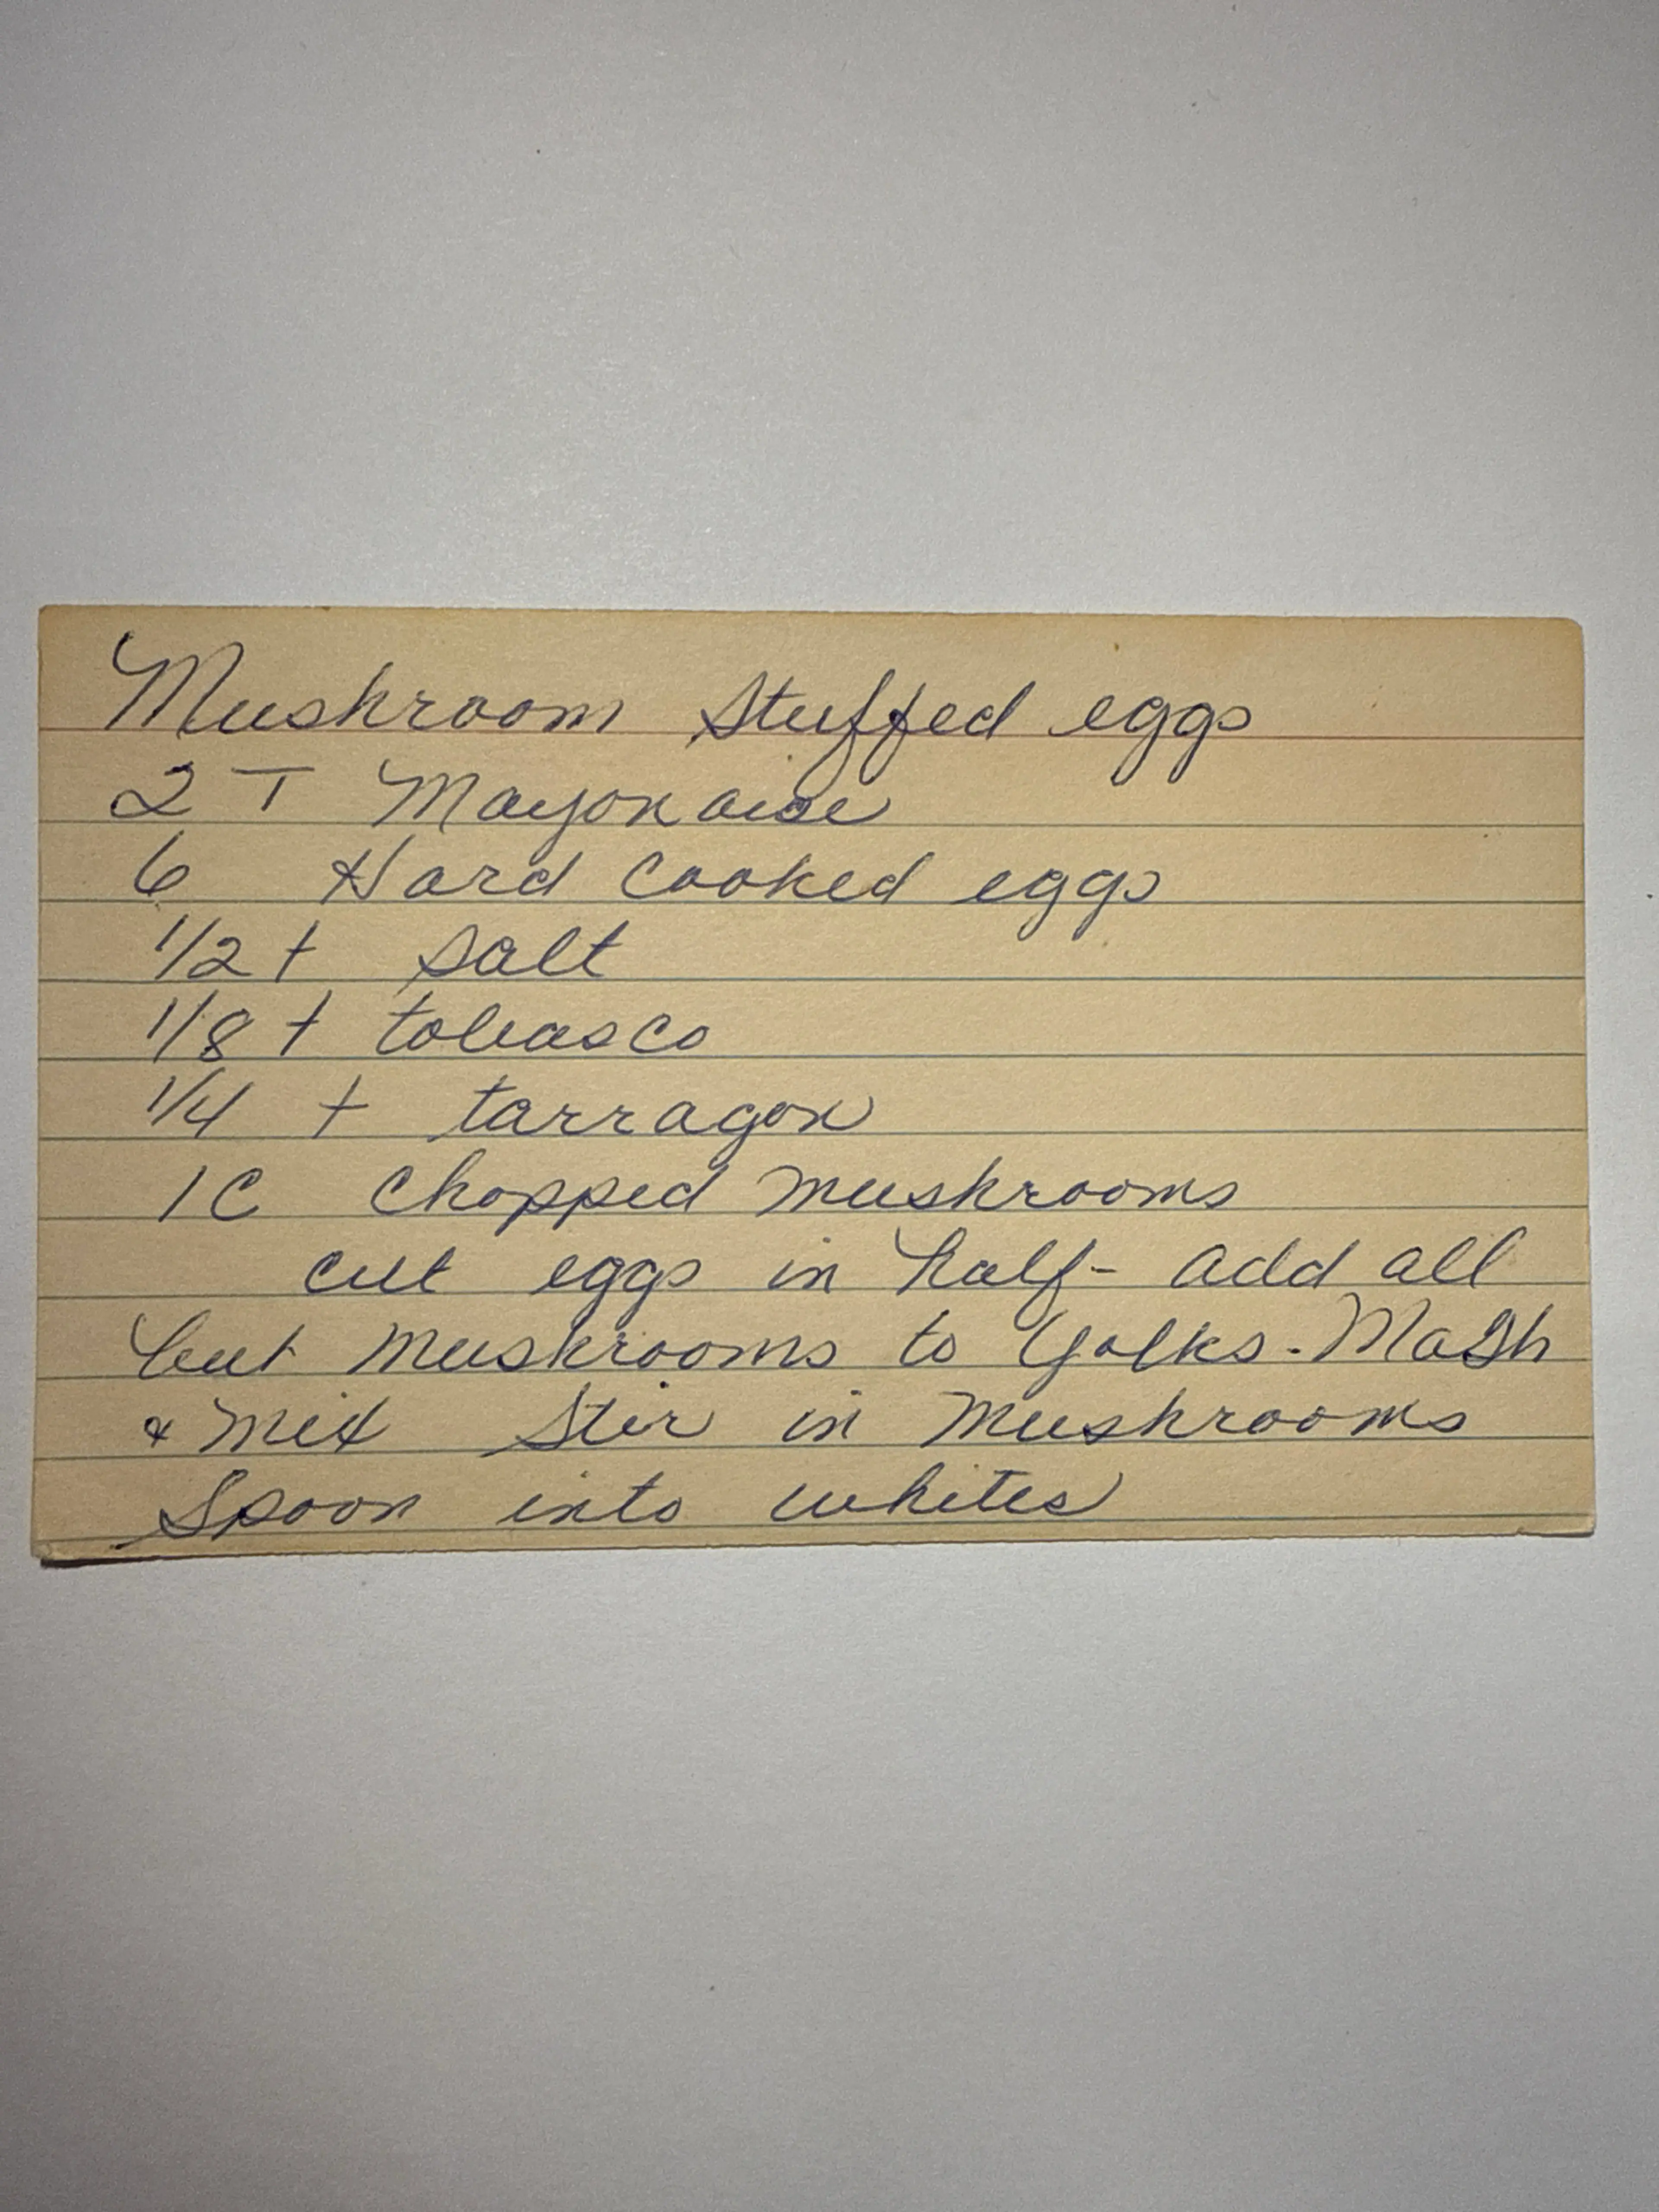 Mushroom Stuffed eggs
2 T Mayonaise
6 Hard Cooked eggs
1/2 t salt
1/8 t tobasco
1/4 t tarragon
1 C Chopped mushrooms
cut eggs in half - add all
but mushrooms to yolks. Mash
& mix Stir in mushrooms
Spoon into whites